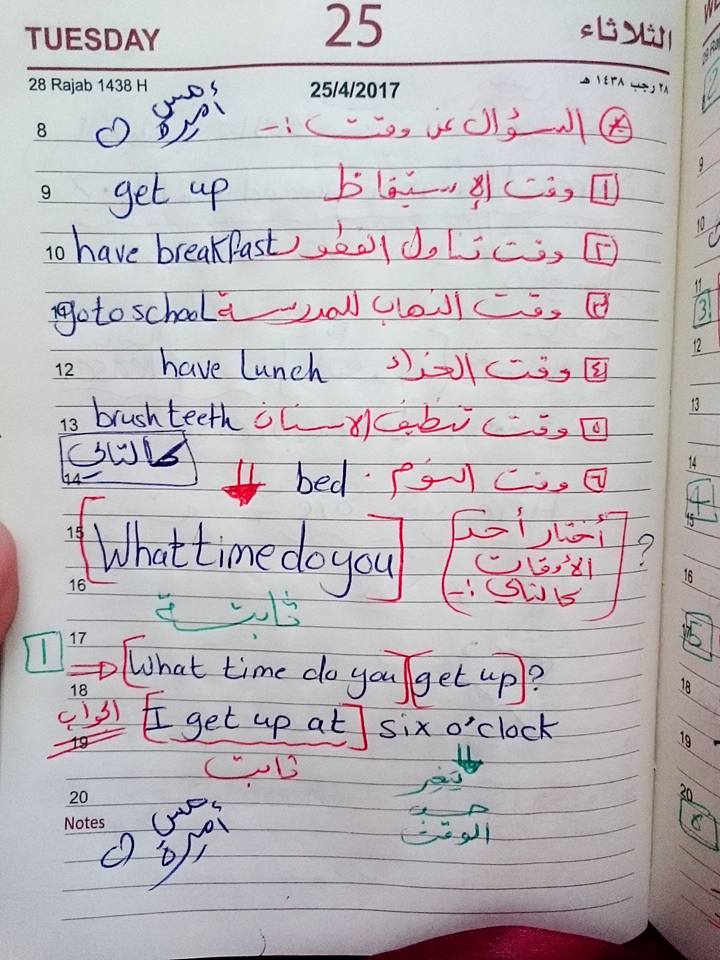 TUESDAY 25 الثلاثاء
28 Rajab 1438 H 25/4/2017 ٢٨ رجب ١٤٣٨ هـ
8 أميرة السؤال عن وقت :-
9 get up وقت الإستيقاظ ١
10 have breakfast وقت تناول الفطور ٢
go to school وقت الذهاب للمدرسة ٣
12 have lunch وقت الغداء ٤
13 brush teeth وقت تنظيف الاسنان ٥
كالتالي
14 bed وقت النوم ٦
15 What time do you أختار أحد الأوقات كالتالي :- ?
16 ثابتة
17
1 What time do you get up?
18
الجواب I get up at six o'clock
19 ثابت يتغير
حسب
20 الوقت
Notes أميرة
9
10
11
3
12
13
14
4
15
16
5
18
19
20